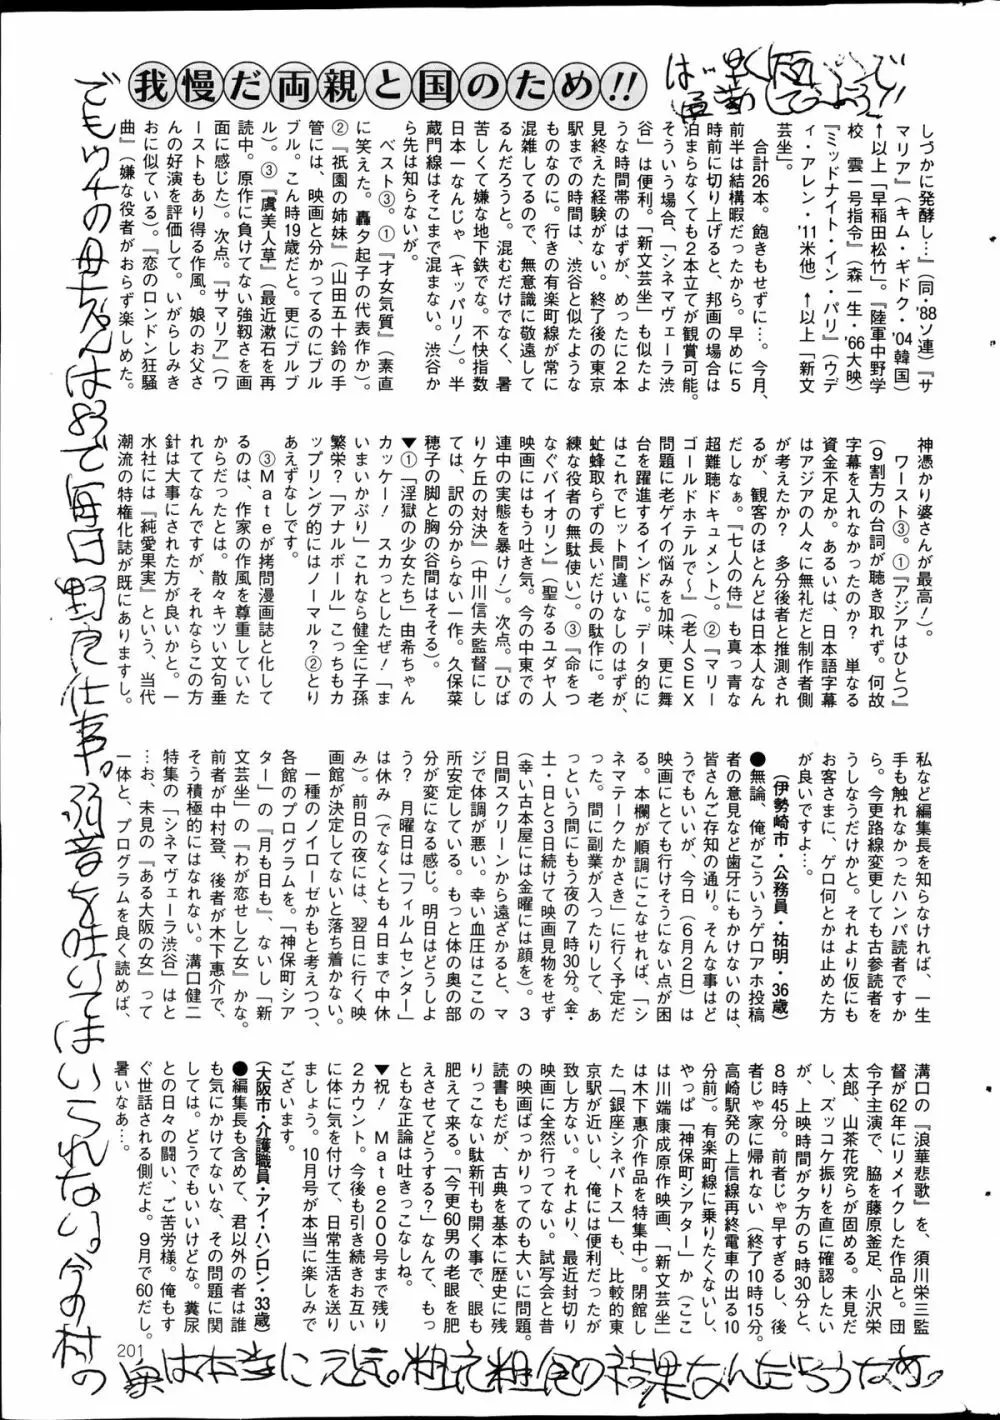 我慢だ両親と国のため!!
しづかに発酵し…』(同・'88ソ連)『サ
マリア』(キム・ギドク・'04韓国)
↑以上「早稲田松竹」。『陸軍中野学
校 雲一号指令』(森一生・'66大映)
『ミッドナイト・イン・パリ』(ウデ
ィ・アレン・'11米他)↑以上「新文
芸坐」。
合計26本。飽きもせずに…。今月、
前半は結構暇だったから。早めに5
時前に切り上げると、邦画の場合は
泊まらなくても2本立てが観賞可能。
そういう場合、「シネマヴェーラ渋
谷」は便利。「新文芸坐」も似たよ
うな時間帯のはずが、めったに2本
見終えた経験がない。終了後の東京
駅までの時間は、渋谷と似たような
ものなのに。行きの有楽町線が常に
混雑してるので、無意識に敬遠して
るんだろうと。混むだけでなく、暑
苦しくて嫌な地下鉄でな。不快指数
日本一なんじゃ(キッパリ!)。半
蔵門線はそこまで混まない。渋谷か
ら先は知らないが。
ベスト③。①『才女気質』(素直
に笑えた。轟夕起子の代表作か)。
②『祇園の姉妹』(山田五十鈴の手
管には、映画と分かってるのにブル
ブル。こん時19歳だと。更にブルブ
ル)。③『虞美人草』(最近漱石を再
読中。原作に負けてない強靱さを画
面に感じた)。次点。『サマリア』(ワ
ーストもあり得る作風。娘のお父さ
んの好演を評価して。いがらしみき
おに似ている)。『恋のロンドン狂騒
曲』(嫌な役者がおらず楽しめた。
神憑かり婆さんが最高!)。
ワースト③。①『アジアはひとつ』
(9割方の台詞が聴き取れず。何故
字幕を入れなかったのか? 単なる
資金不足か。あるいは、日本語字幕
はアジアの人々に無礼だと制作者側
が考えたか? 多分後者と推測され
るが、観客のほとんどは日本人なん
だしなぁ。『七人の侍』も真っ青な
超難聴ドキュメント)。②『マリー
ゴールドホテルで~』(老人SEX
問題に老ゲイの悩みを加味、更に舞
台を躍進するインドに。データ的に
はこれでヒット間違いなしのはずが、
虻蜂取らずの長いだけの駄作に。老
練な役者の無駄使い)。③『命をつ
なぐバイオリン』(聖なるユダヤ人
映画にはもう吐き気。今の中東での
連中の実態を暴け!)。次点。『ひば
りケ丘の対決』(中川信夫監督にし
ては、訳の分からない一作。久保菜
穂子の脚と胸の谷間はそそる)。
▼①「淫獄の少女たち」由希ちゃん
カッケー! スカっとしたぜ!「ま
いまいかぶり」これなら健全に子孫
繁栄?「アナルボール」こっちもカ
ップリング的にはノーマル?②とり
あえずなしです。
③Mateが拷問漫画誌と化して
るのは、作家の作風を尊重していた
からだったとは。散々キツい文句垂
れててなんですが、それならこの方
針は大事にされた方が良いかと。一
水社には『純愛果実』という、当代
潮流の特権化誌が既にありますし。
私など編集長を知らなければ、一生
手も触れなかったハンパ読者ですか
ら。今更路線変更しても古参読者を
うしなうだけかと。それより仮にも
お客さまに、ゲロ何とかは止めた方
が良いですよ…。
(伊勢崎市・公務員・祐明・36歳)
●無論、俺がこういうゲロアホ投稿
者の意見など歯牙にもかけないのは、
皆さんご存知の通り。そんな事はど
うでもいいが、今日(6月2日)は
映画にとても行けそうにない点が困
る。本欄が順調にこなせれば、「シ
ネマテークたかさき」に行く予定だ
った。間に副業が入ったりして、あ
っという間にもう夜の7時30分。金・
土・日と3日続けて映画見物をせず
(幸い古本屋には金曜には顔を)。3
日間スクリーンから遠ざかると、マ
ジで体調が悪い。幸い血圧はここの
所安定している。もっと体の奥の部
分が変になる感じ。明日はどうしよ
う? 月曜日は「フィルムセンター」
は休み(でなくとも4日まで中休
み)。前日の夜には、翌日に行く映
画館が決定してないと落ち着かない。
一種のノイローゼかもと考えつつ、
各館のプログラムを。「神保町シア
ター」の『月も日も』、ないし「新
文芸坐」の『わが恋せし乙女』かな。
前者が中村登、後者が木下惠介で、
そう積極的にはなれない。溝口健二
特集の「シネマヴェーラ渋谷」はと
…お、未見の『ある大阪の女』って
一体と、プログラムを良く読めば、
溝口の『浪華悲歌』を、須川栄三監
督が62年にリメイクした作品と。団
令子主演で、脇を藤原釜足、小沢栄
太郎、山茶花究らが固める。未見だ
し、ズッコケ振りを直に確認したい
が、上映時間が夕方の5時30分と、
8時45分。前者じゃ早すぎるし、後
者じゃ家に帰れない(終了10時15分。
高崎駅発の上信線再終電車の出る10
分前)。有楽町線に乗りたくないし、
やっぱ「神保町シアター」か(ここ
は川端康成原作映画、「新文芸坐」
は木下惠介作品を特集中)。閉館し
た「銀座シネパトス」も、比較的東
京駅が近いし、俺には便利だったが
致し方ない。それより、最近封切り
映画に全然行ってない。試写会と昔
の映画ばっかりってのも大いに問題。
読書もだが、古典を基本に歴史に残
りっこない駄新刊も開く事で、眼も
肥えて来る。「今更60男の老眼を肥
えさせてどうする?」なんて、もっ
ともな正論は吐きっこなしね。
▼祝! Mate200号まで残り
2カウント。今後も引き続きお互い
に体に気を付けて、日常生活を送り
ましょう。10月号が本当に楽しみで
ございます。
(大阪市・介護職員・アイ・ハンロン・33歳)
●編集長も含めて、君以外の者は誰
も気にかけてないな、その問題に関
しては。どうでもいいけどな。糞尿
との日々の闘い、ご苦労様。俺もす
ぐ世話される側だよ。9月で60だし。
暑いなあ…。
でもウチの母ちゃんは85で毎日野良仕事。弱音を吐いてはいられない。今の村の
奥は本当に元気。粗衣粗食の結果なんだろうなあ。
201